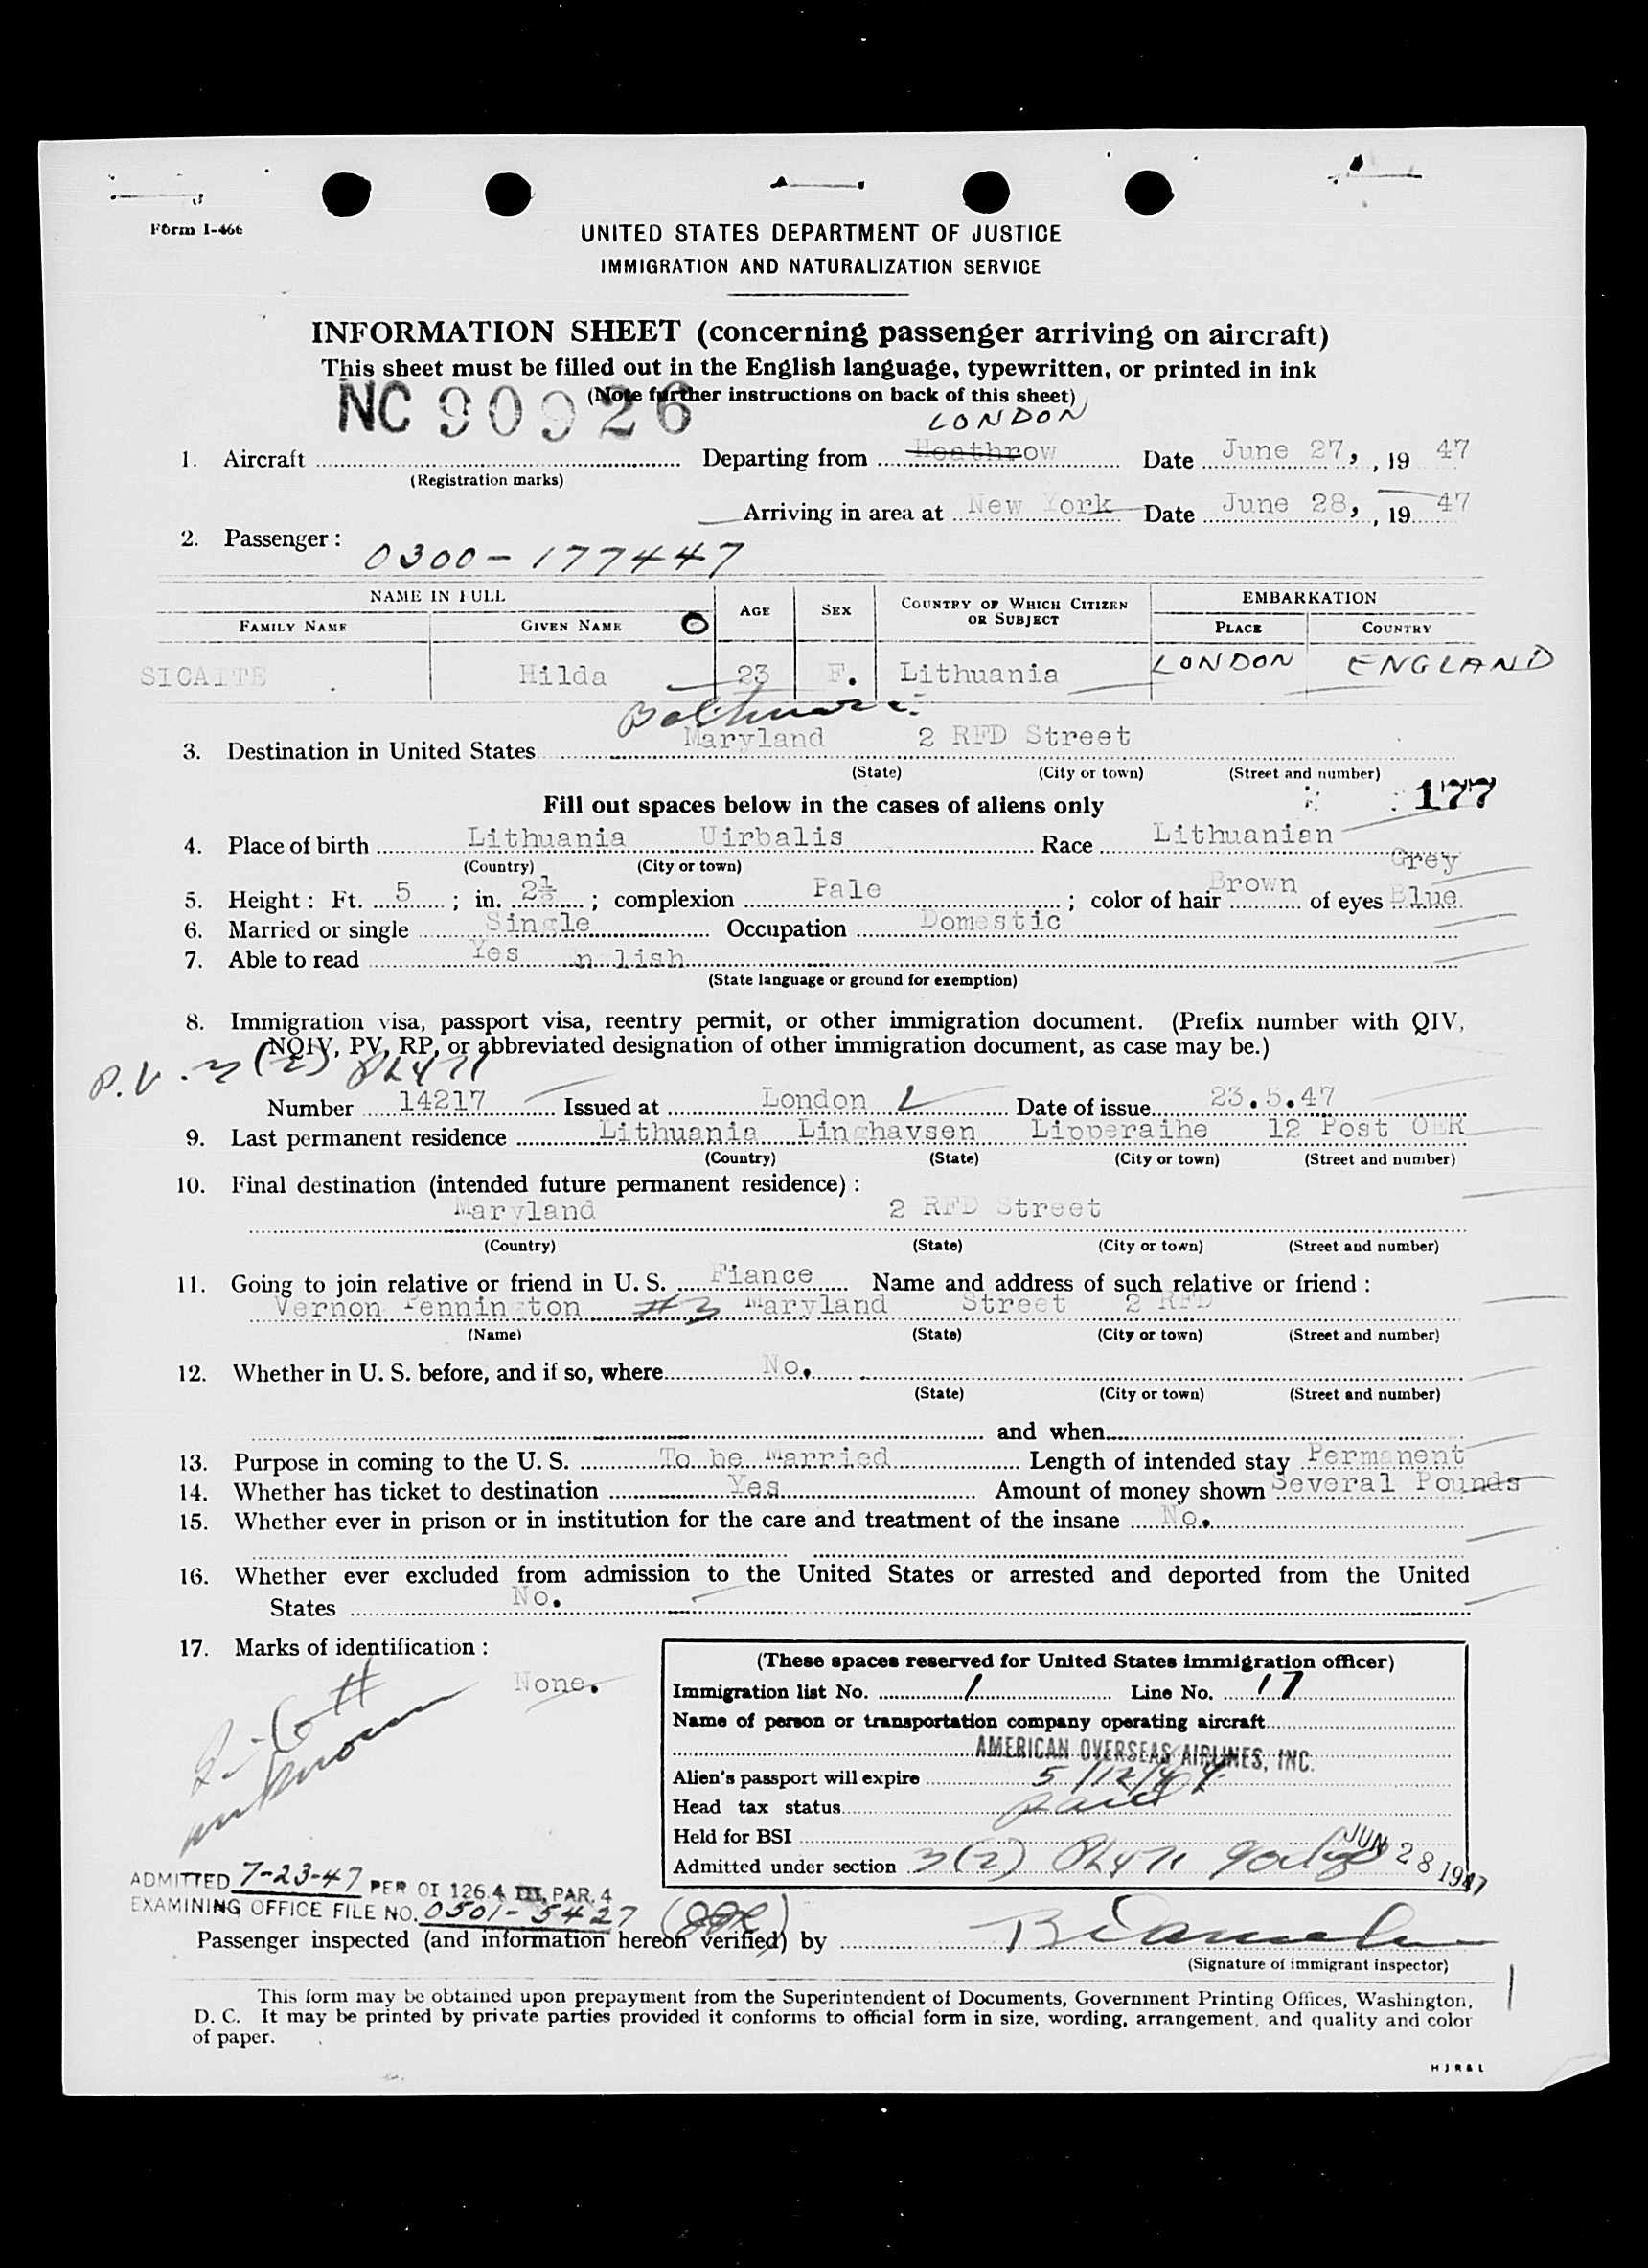 Form I-466
UNITED STATES DEPARTMENT OF JUSTICE
IMMIGRATION AND NATURALIZATION SERVICE
INFORMATION SHEET (concerning passenger arriving on aircraft)
This sheet must be filled out in the English language, typewritten, or printed in ink
(Note further instructions on back of this sheet)
NC 90926
LONDON
1. Aircraft Departing from Heathrow Date June 27, , 19 47
(Registration marks)
Arriving in area at New York Date June 28, , 19 47
2. Passenger :
0300-177447
NAME IN FULL AGE SEX COUNTRY OF WHICH CITIZEN OR SUBJECT EMBARKATION
FAMILY NAME GIVEN NAME PLACE COUNTRY
SICAITE Hilda 23 F. Lithuania LONDON ENGLAND
Baltimore
3. Destination in United States Maryland 2 RFD Street
(State) (City or town) (Street and number)
177
Fill out spaces below in the cases of aliens only
4. Place of birth Lithuania Uirbalis Race Lithuanian
(Country) (City or town)
Grey
5. Height : Ft. 5 ; in. 2½ ; complexion Pale ; color of hair Brown of eyes Blue
6. Married or single Single Occupation Domestic
7. Able to read Yes n lish
(State language or ground for exemption)
8. Immigration visa, passport visa, reentry permit, or other immigration document. (Prefix number with QIV,
NQIV, PV, RP, or abbreviated designation of other immigration document, as case may be.)
P.V. 3(2)
Number 14217 Issued at London Date of issue 23.5.47
9. Last permanent residence Lithuania Linghavsen Lipperaihe 12 Post OER
(Country) (State) (City or town) (Street and number)
10. Final destination (intended future permanent residence) :
Maryland 2 RFD Street
(Country) (State) (City or town) (Street and number)
11. Going to join relative or friend in U. S. Fiance Name and address of such relative or friend :
Vernon Pennington #3 Maryland Street 2 RFD
(Name) (State) (City or town) (Street and number)
12. Whether in U. S. before, and if so, where No.
(State) (City or town) (Street and number)
and when
13. Purpose in coming to the U. S. To be Married Length of intended stay Permanent
14. Whether has ticket to destination Yes Amount of money shown Several Pounds
15. Whether ever in prison or in institution for the care and treatment of the insane No.
16. Whether ever excluded from admission to the United States or arrested and deported from the United
States No.
17. Marks of identification :
None.
(These spaces reserved for United States immigration officer)
Immigration list No. 1 Line No. 17
Name of person or transportation company operating aircraft
AMERICAN OVERSEAS AIRLINES, INC.
Alien's passport will expire
Head tax status paid
Held for BSI
Admitted under section 3(2)
JUN 28 1947
ADMITTED 7-23-47 PER OI 126.4 III, PAR. 4
EXAMINING OFFICE FILE NO. 0501-5427
Passenger inspected (and information hereon verified) by
(Signature of immigrant inspector)
This form may be obtained upon prepayment from the Superintendent of Documents, Government Printing Offices, Washington,
D. C. It may be printed by private parties provided it conforms to official form in size, wording, arrangement, and quality and color
of paper.
HJR&L